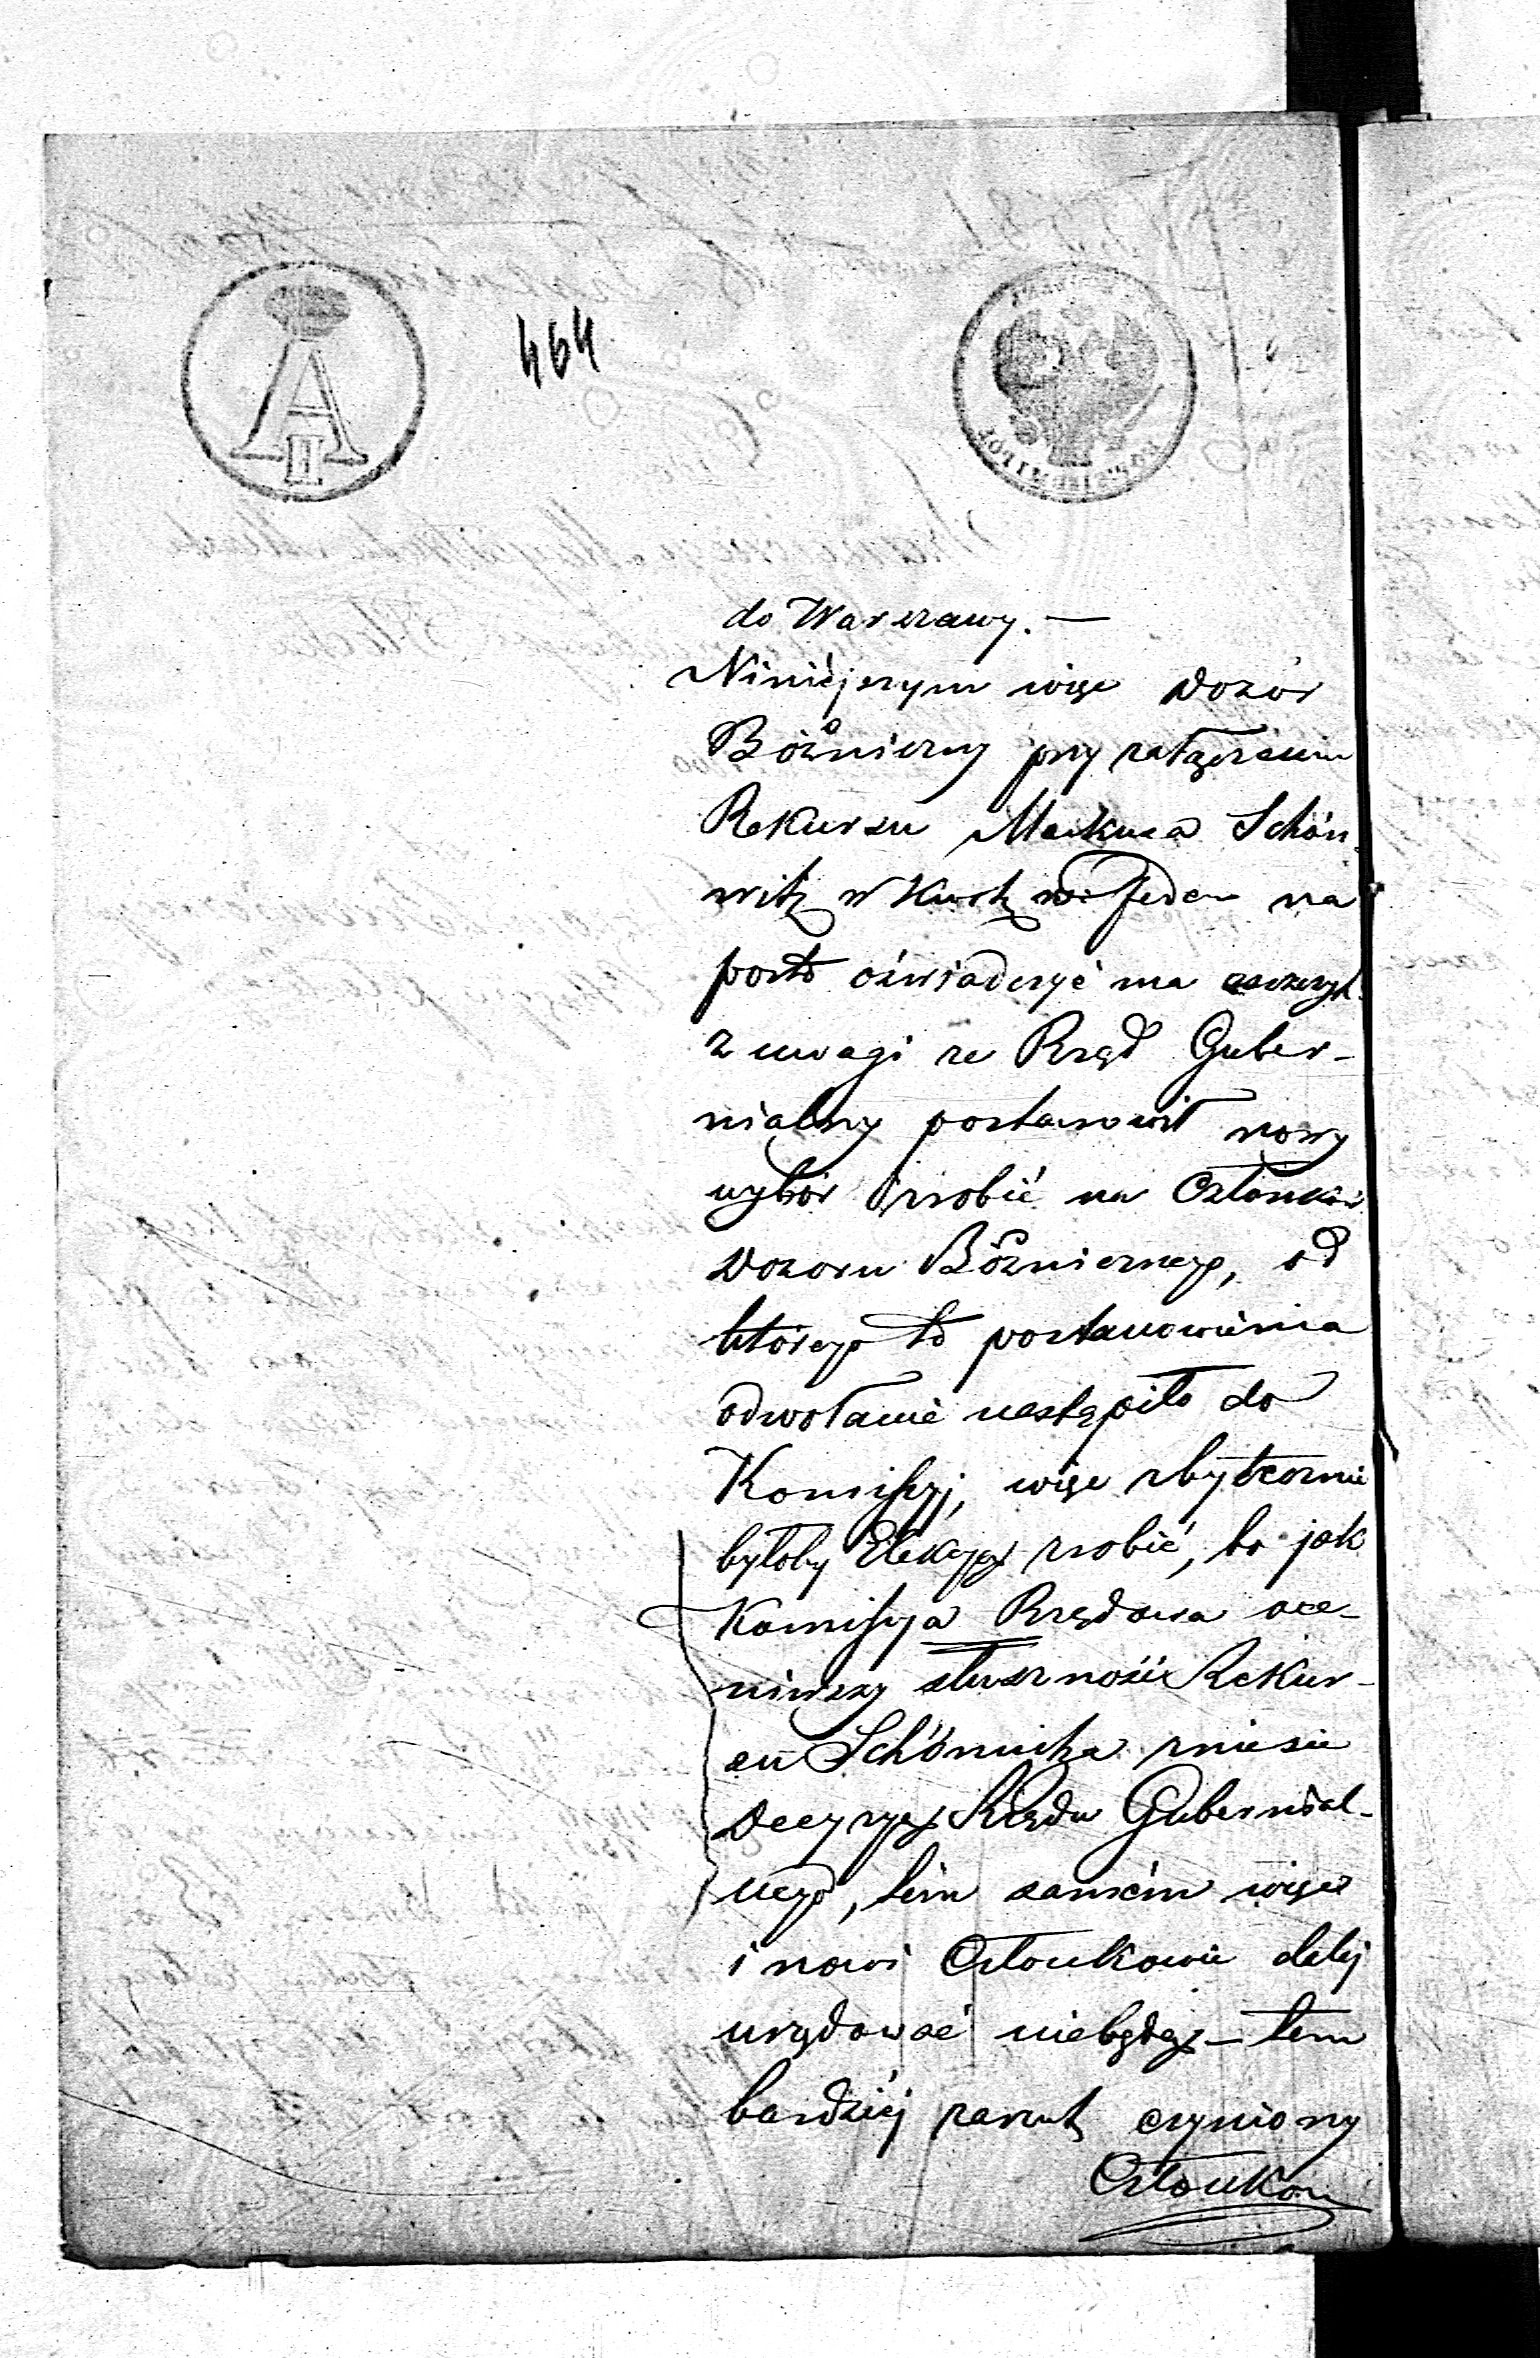 464
A II
do Warszawy. —
Niniéjszym więc Dozór
Bóżniczny przy załączeniu
Rekursu Markusa Schön
witz w kwoty na
porto oświadczyć ma zaszczyt
z uwagi ze Rząd Guber-
nialny postanowił nowy
wybór zrobić na Członków
Dozoru Bóżnicznego, od
którego to postanowienia
odwołanie nastąpiło do
Komissyj, więc zbyteczne
byłoby Elekcyą zrobić, bo jak
Komissya Rządowa oce-
niwszy słuszność Rekur-
su Schönwitza zniesie
Decyzyą Rządu Gubernial-
nego, tém samém więc
i nowi Członkowie daléj
urzędować niebędą – tem
bardziéj zarzut czyniony
Członkom